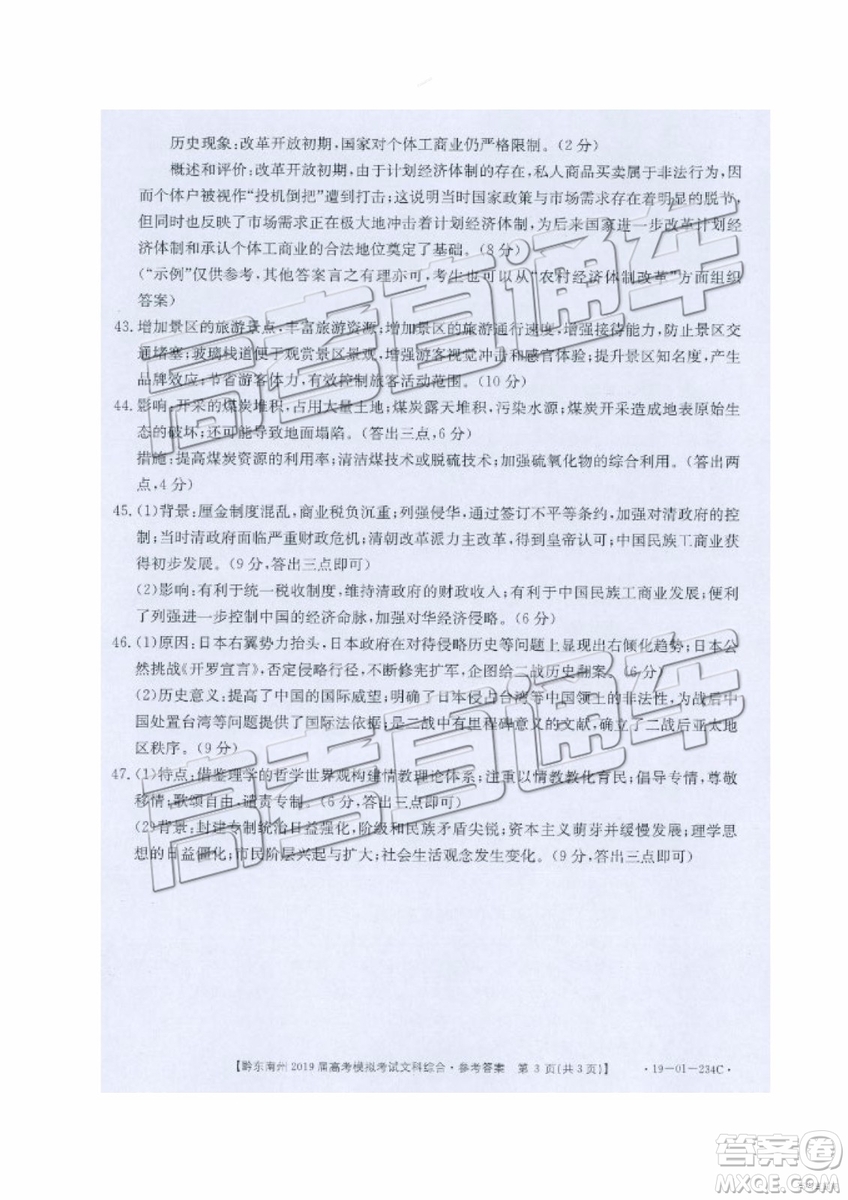 历史现象:改革开放初期,国家对个体工商业仍严格限制。(2分)
概述和评价:改革开放初期,由于计划经济体制的存在,私人商品买卖属于非法行为,因
而个体户被视作“投机倒把”遭到打击;这说明当时国家政策与市场需求存在着明显的脱节,
但同时也反映了市场需求正在极大地冲击着计划经济体制,为后来国家进一步改革计划经
济体制和承认个体工商业的合法地位奠定了基础。(8分)
(“示例”仅供参考,其他答案言之有理亦可,考生也可以从“农村经济体制改革”方面组织
答案)
43. 增加景区的旅游景点,丰富旅游资源;增加景区的旅游通行速度,增强接待能力,防止景区交
通堵塞;玻璃栈道便于观赏景区景观,增强游客视觉冲击和感官体验;提升景区知名度,产生
品牌效应;节省游客体力,有效控制旅客活动范围。(10分)
44. 影响:开采的煤炭堆积,占用大量土地;煤炭露天堆积,污染水源;煤炭开采造成地表原始生
态的破坏;还可能导致地面塌陷。(答出三点,6分)
措施:提高煤炭资源的利用率;清洁煤技术或脱硫技术;加强硫氧化物的综合利用。(答出两
点,4分)
45. (1)背景:厘金制度混乱,商业税负沉重;列强侵华,通过签订不平等条约,加强对清政府的控
制;当时清政府面临严重财政危机;清朝改革派力主改革,得到皇帝认可;中国民族工商业获
得初步发展。(9分,答出三点即可)
(2)影响:有利于统一税收制度,维持清政府的财政收入;有利于中国民族工商业发展;便
了列强进一步控制中国的经济命脉,加强对华经济侵略。(6分)
46. (1)原因:日本右翼势力抬头,日本政府在对待侵略历史等问题上显现出右倾化趋势;日本公
然挑战《开罗宣言》,否定侵略行径,不断修宪扩军,企图给二战历史翻案。(6分)
(2)历史意义:提高了中国的国际威望;明确了日本侵占台湾等中国领土的非法性,为战后中
国处置台湾等问题提供了国际法依据;是二战中有里程碑意义的文献,确立了二战后亚太地
区秩序。(9分)
47. (1)特点:借鉴理学的哲学世界观构建情教理论体系;注重以情教教化育民;倡导专情,尊敬
移情;歌颂自由,谴责专制。(6分,答出三点即可)
(2)背景:封建专制统治日益强化,阶级和民族矛盾尖锐;资本主义萌芽并缓慢发展;理学思
想的日益僵化;市民阶层兴起与扩大;社会生活观念发生变化。(9分,答出三点即可)
高考直通车
高考直通车
【黔东南州2019届高考模拟考试文科综合·参考答案 第3页(共3页)】 ·19-01-234C·
答案圈
MXQE.COM